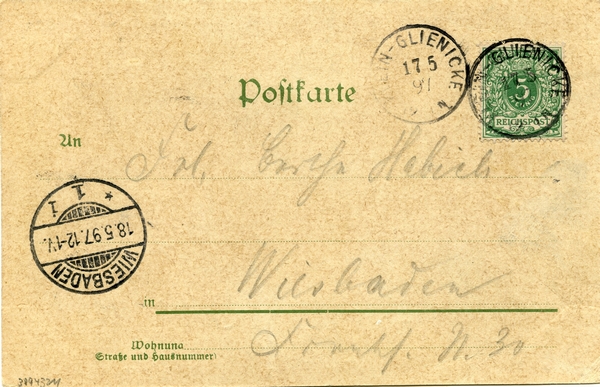 Postkarte
-GLIENICKE
17 5
97
-GLIENICKE
5
REICHSPOST
An
Frl. Bertha Habich
1
1
18.5.97.12-1V.
WIESBADEN
Wiesbaden
in
Wohnung
Straße und Hausnummer
N. 30